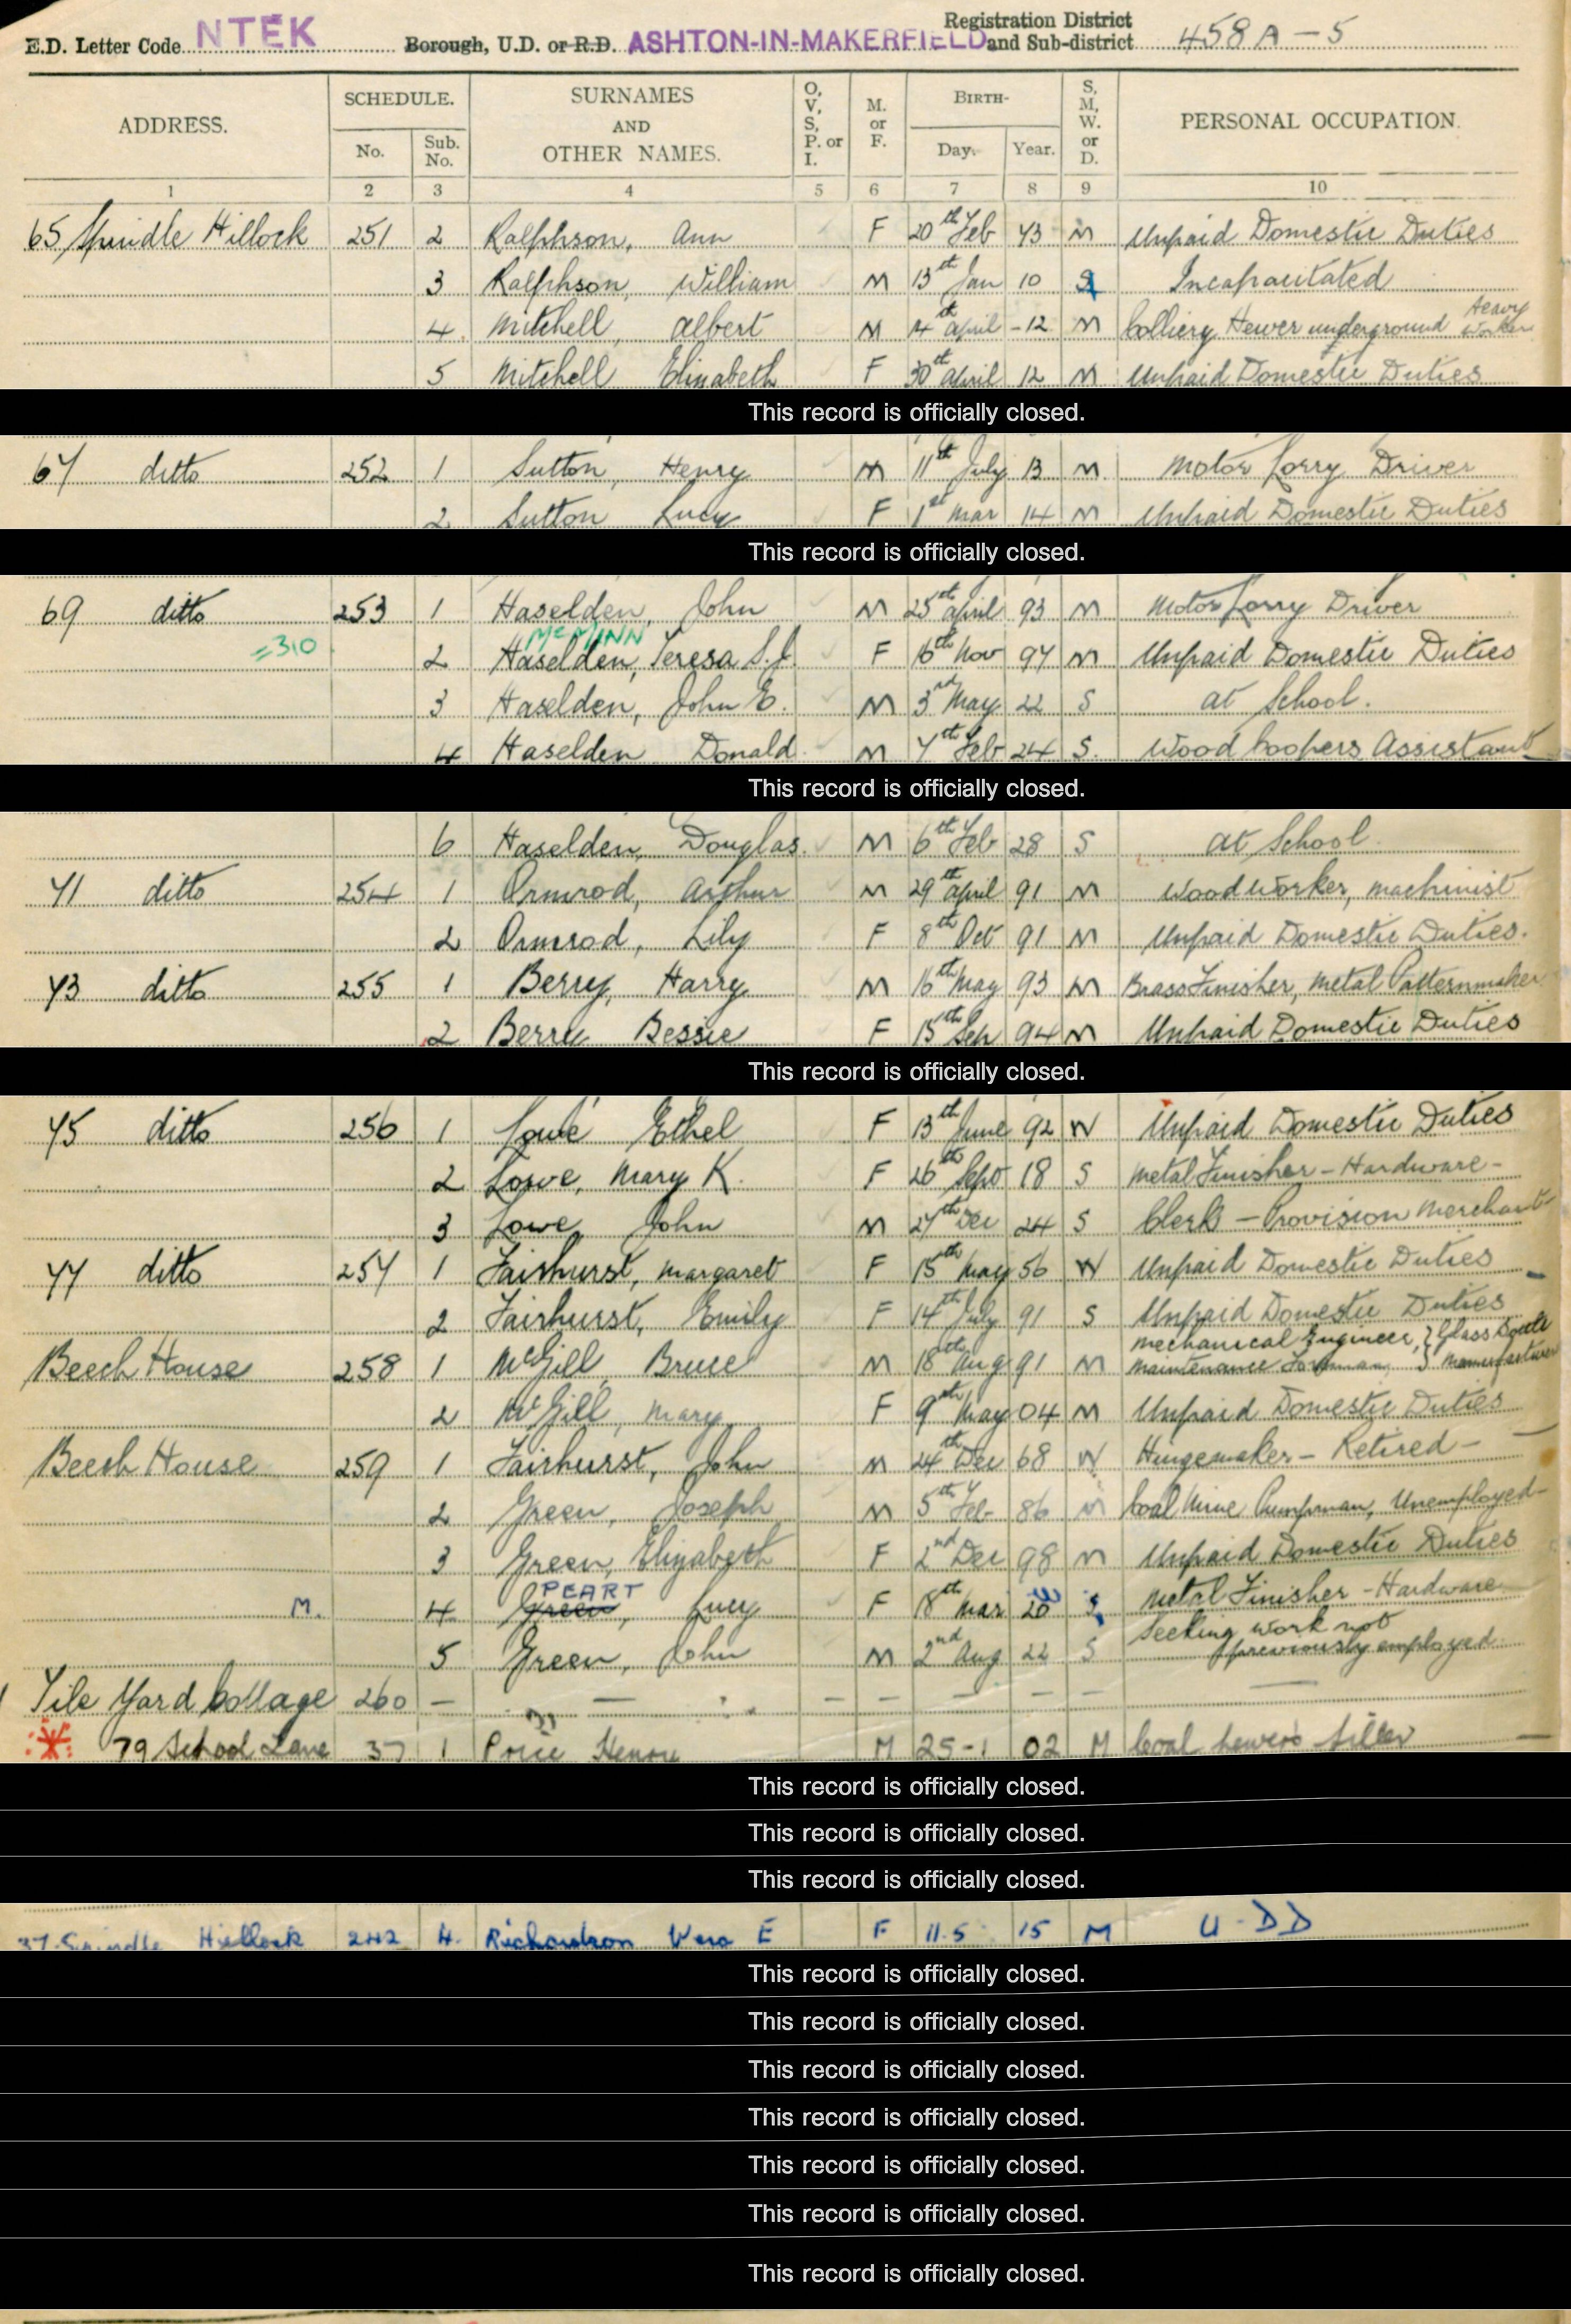 E.D. Letter Code NTEK Borough, U.D. or R.D. ASHTON-IN-MAKERFIELD Registration District and Sub-district 458 A - 5
ADDRESS. SCHEDULE. No. Sub. No. SURNAMES AND OTHER NAMES. O, V, S, P. or I. M. or F. BIRTH- Day. Year. S, M, W. or D. PERSONAL OCCUPATION.
1 2 3 4 5 6 7 8 9 10
65 Spindle Hillock 251 2 Ralphson, Ann F 20th Feb 73 M Unpaid Domestic Duties
3 Ralphson, William M 13th Jan 10 S Incapacitated
4 Mitchell, Albert M 14th April -12 M Colliery Hewer underground Heavy Worker
5 Mitchell Elizabeth F 30th April 12 M Unpaid Domestic Duties
This record is officially closed.
67 ditto 252 1 Sutton, Henry M 11th July 13 M Motor Lorry Driver
2 Sutton Lucy F 1st Mar 14 M Unpaid Domestic Duties
This record is officially closed.
69 ditto 253 1 Haselden, John M 25th April 93 M Motor Lorry Driver
=310 McMINN
2 Haselden, Teresa S.J. F 16th Nov 97 M Unpaid Domestic Duties
3 Haselden, John E. M 3rd May 22 S at School.
4 Haselden Donald M 7th Feb 24 S. Wood Coopers Assistant
This record is officially closed.
6 Haselden, Douglas M 6th Feb 28 S at School
71 ditto 254 1 Ormrod, Arthur M 29th April 91 M Wood Worker, machinist
2 Ormrod, Lily F 8th Oct 91 M Unpaid Domestic Duties.
73 ditto 255 1 Berry, Harry M 16th May 93 M Brass Finisher, Metal Patternmaker
2 Berry Bessie F 15th Sep 94 M Unpaid Domestic Duties
This record is officially closed.
75 ditto 256 1 Lowe Ethel F 13th June 92 W Unpaid Domestic Duties
2 Lowe, Mary K. F 26th Sept 18 S Metal Finisher - Hardware -
3 Lowe, John M 27th Dec 24 S Clerk - Provision Merchant
77 ditto 257 1 Fairhurst, Margaret F 15th May 56 W Unpaid Domestic Duties
2 Fairhurst, Emily F 14th July 91 S Unpaid Domestic Duties
Beech House 258 1 McGill, Bruce M 18th Aug 91 M Mechanical Engineer, maintenance Foreman } Glass Bottle manufacture
2 McGill, Mary F 9th May 04 M Unpaid Domestic Duties
Beech House 259 1 Fairhurst, John M 24th Dec 68 W Hingemaker - Retired -
2 Green, Joseph M 5th Feb 86 M Coal Mine Pumpman, Unemployed
3 Green, Elizabeth F 2nd Dec 98 M Unpaid Domestic Duties
PEART
M. 4 Green, Lucy F 18th Mar 20 S Metal Finisher - Hardware
5 Green, John M 2nd Aug 22 S Seeking work not previously employed
Tile Yard Cottage 260 - - - - - - -
79 School Lane 37 1 Price Henry M 25-1 02 M Coal hewers filler
This record is officially closed.
This record is officially closed.
This record is officially closed.
37 Spindle Hillock 242 4. Richardson Vera E F 11.5 15 M U.D D
This record is officially closed.
This record is officially closed.
This record is officially closed.
This record is officially closed.
This record is officially closed.
This record is officially closed.
This record is officially closed.